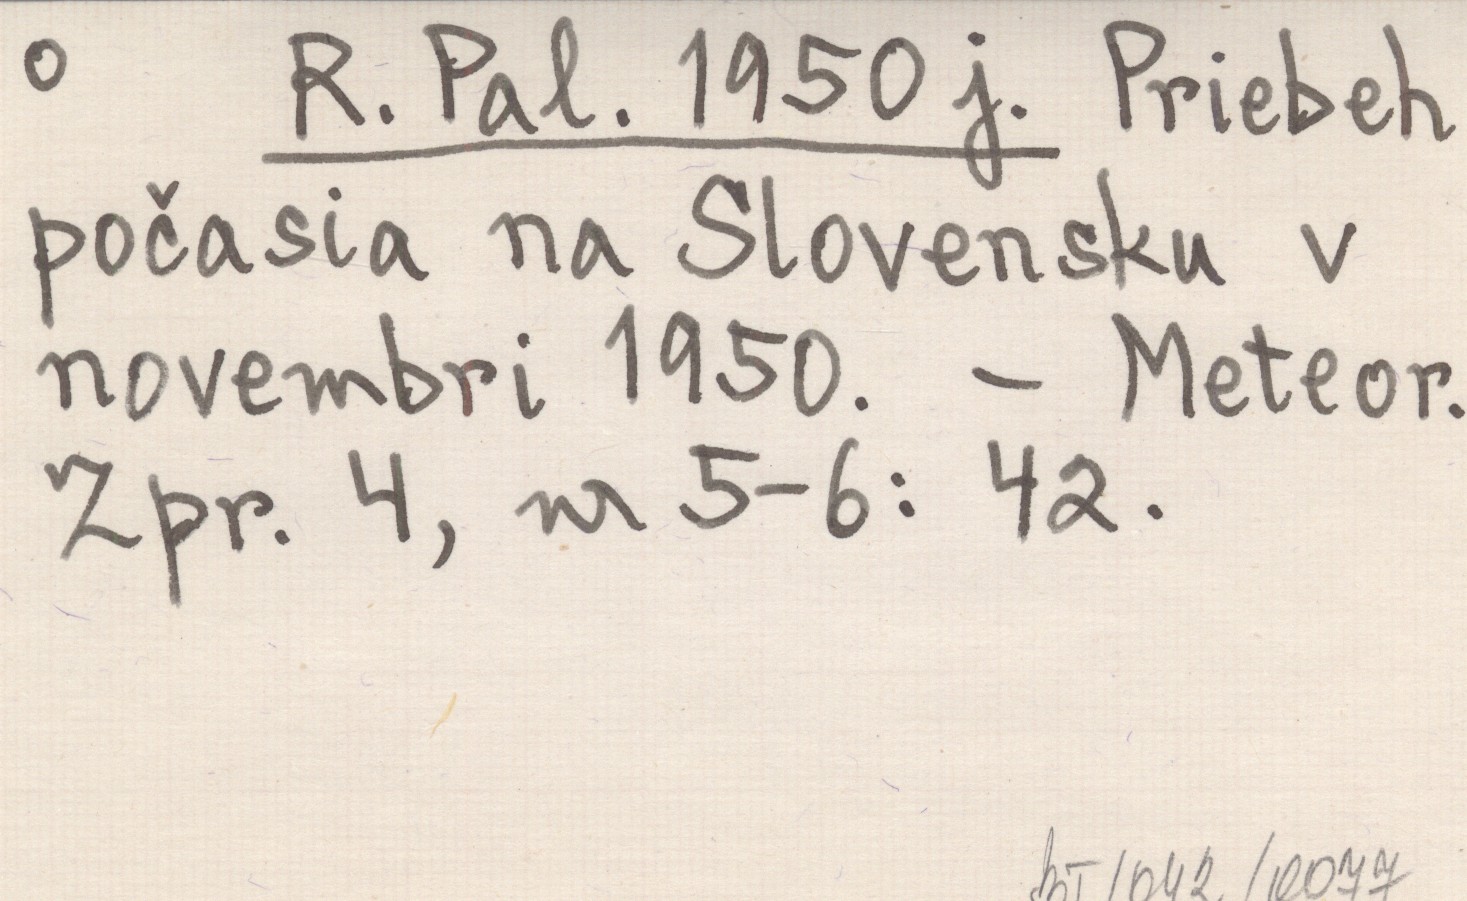 o R. Pal. 1950 j. Priebeh
počasia na Slovensku v
novembri 1950. – Meteor.
Zpr. 4, nr 5-6: 42.